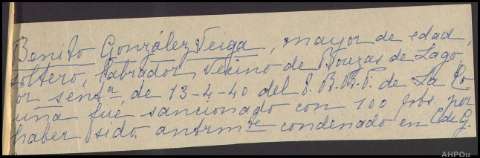 Benito González Veiga, mayor de edad,
soltero, labrador, vecino de Bouzas de Lago.
or sentª, de 13-4-40 del T. R. R. P. de La Co
uña fue sancionado con 100 ptas por
haber sido anterm.te condenado en C. de G.
AHPOu